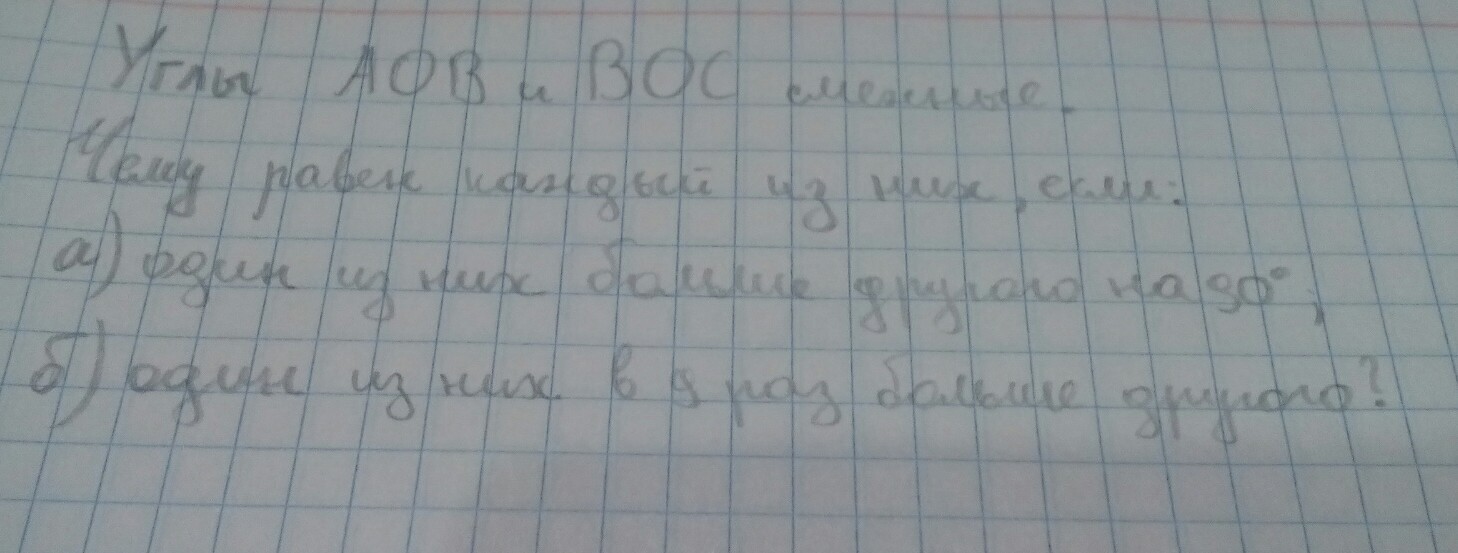 Углы АОВ и ВОС смежные.
Чему равен каждый из них, если:
а) один из них больше другого на 30°;
б) один из них в 5 раз больше другого?